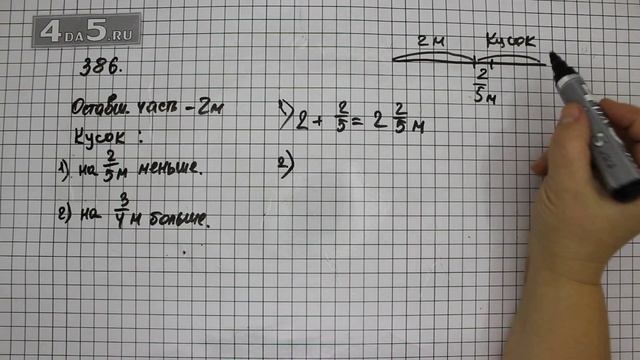 4DA5.RU
386.
Оставш. часть - 2м
Кусок :
1) на 2/5 м меньше.
2) на 3/4 м больше.
1) 2 + 2/5 = 2 2/5 м
2)
2м Кусок
2/5 м